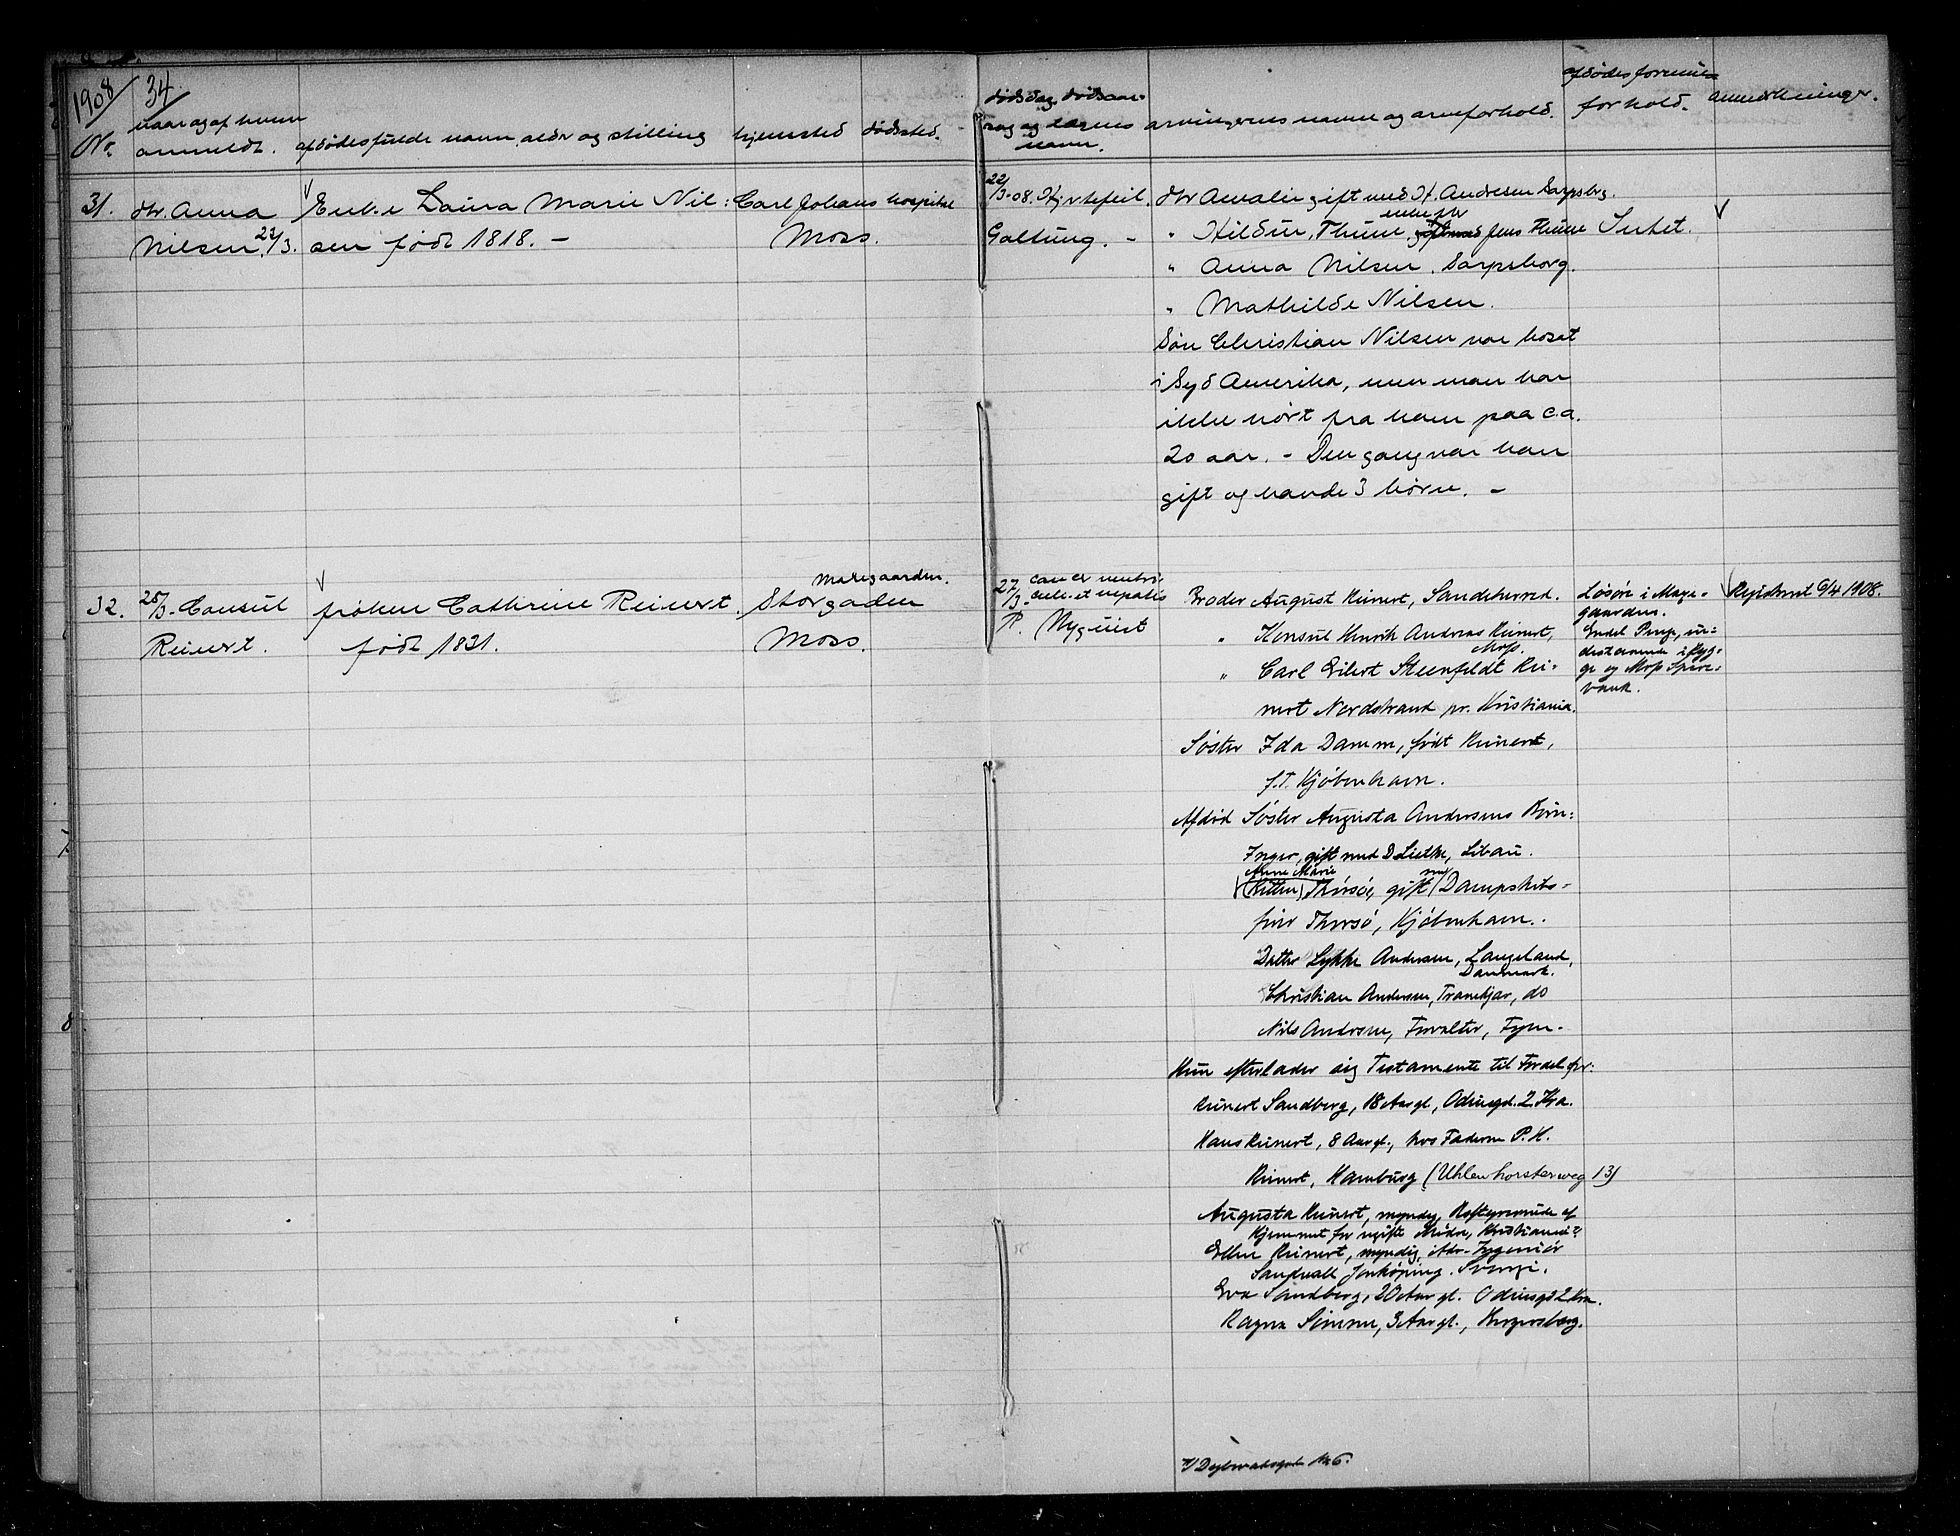 1908 / 34.
No. naar og af hvem anmeldt. afdødes fulde navn, alder og stilling hjemsted dødsted. dødsdag, dødsaar- sag og lægens navn. arvingernes navne og arveforhold. afdødes formues- forhold. anmerkninger.
31. dtr. Anna
Nilsen 22/3.
Enke Laura Marie Nil:
sen født 1818. –
Carl Johans hospital
Moss.
22/3-08. Hjertefeil.
Galtung. –
dtr Amalie gift med H. Andresen Sarpsbrg.
" Hildur, Thune enke efter gift med Jens Thune
" Anna Nilsen, Sarpsborg.
" Mathilde Nilsen.
Søn Christian Nilsen var bosat
i Syd Amerika, men man har
ikke hørt fra ham paa c.a.
20 aar. – Den gang var han
gift og havde 3 børn. –
Intet.
32. 28/3. Consul
Reinert.
frøken Cathrine Reinert.
født 1831.
Møllegaarden.
Storgaden
Moss.
27/3. cancer ventri-
culi et hepatis
P. Nyquist
Broder August Reinert, Sandeherred.
" Konsul Henrik Andreas Reinert,
Moss.
" Carl Eilert Steenfeldt Rei-
nert Nordstrand pr. Kristiania.
Søster Ida Damm, født Reinert,
f.T. Kjøbenhavn.
Afdød Søster Augusta Andersens Børn:
Inger, gift med D. Lietke, Libau.
Anne Marie
(Kitten) Thorsøe, gift med Dampskibs-
fører Thorsø, Kjøbenhavn.
Datter Lykke Andersen, Langeland,
Danmark.
Christian Andersen, Tranekjær, do
Nils Andersen, Forvalter, Fyen.
Hun efterlader sig Testamente til Fordel for:
Reinert Sandberg, 18 Aar gl., Odinsgd. 2 Kra.
Hans Reinert, 8 Aar gl., hos Faderen P. H.
Reinert, Hamburg (Uhlenhorsterweg 13)
Augusta Reinert, myndig, Bestyrerinde af
Hjemmet for ugifte Mødre, Kristiania?
Ellen Reinert, myndig, Adr. Ingeniør
Sandvall Jønkøping. Sverige.
Eva Sandberg, 20 Aar gl. Odinsgd 2 Kra.
Ragna Simon, 3 Aar gl.,
Løsøre i
gaarden.
Endel Penge, in-
destaaende i Ryg-
ge og Moss Spare-
bank.
Registreret 6/4 1908.